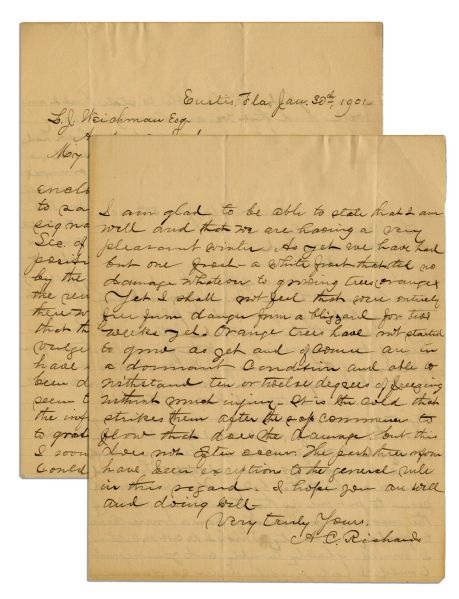 Eustis, Fla. Jan. 30th, 1901
L. J. Weichman Esq.
My
enclo
to sa
signa
Sec. of
by the
the
that th
have
been d
seem t
to grat
I soon
could
I am glad to be able to state that I am
well and that we are having a very
pleasant winter. As yet we have had
but one frost a white frost that did no
damage whatever to growing trees (oranges)
Yet I shall not feel that were entirely
free from danger from a blizzard for two
weeks yet. Orange trees have not started
to grow as yet and of course are in
a dormant condition and able to
withstand ten or twelve degrees of freezing
without much injury. It is the cold that
strikes them after the sap commences to
flow that does the damage. but this
does not often occur. The past three
have been exception to the general rule
in this regard. I hope you are well
and doing well
Very truly Yours,
A. C. Richards